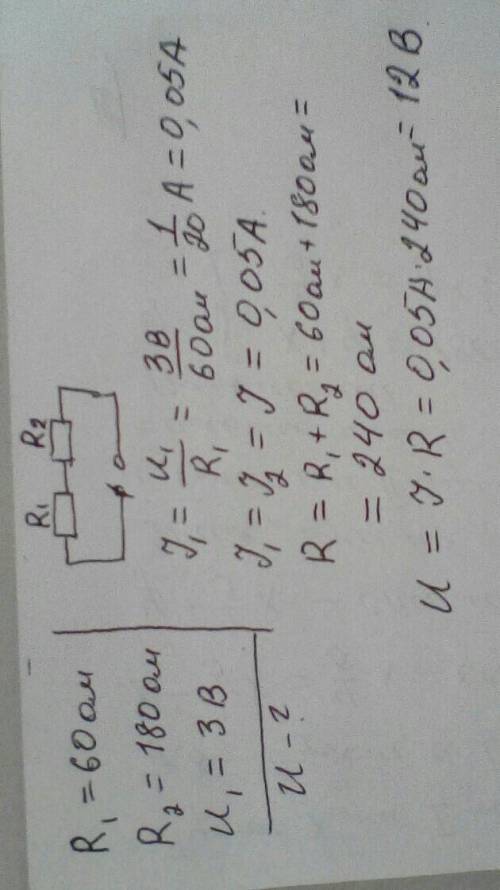 R₁ = 60 ом
R₂ = 180 ом
U₁ = 3 В
U - ?
R₁ R₂
I₁ = U₁/R₁ = 3В/60ом = 1/20 А = 0,05А
I₁ = I₂ = I = 0,05А.
R = R₁ + R₂ = 60ом + 180ом =
= 240 ом
U = I · R = 0,05А · 240ом = 12 В.